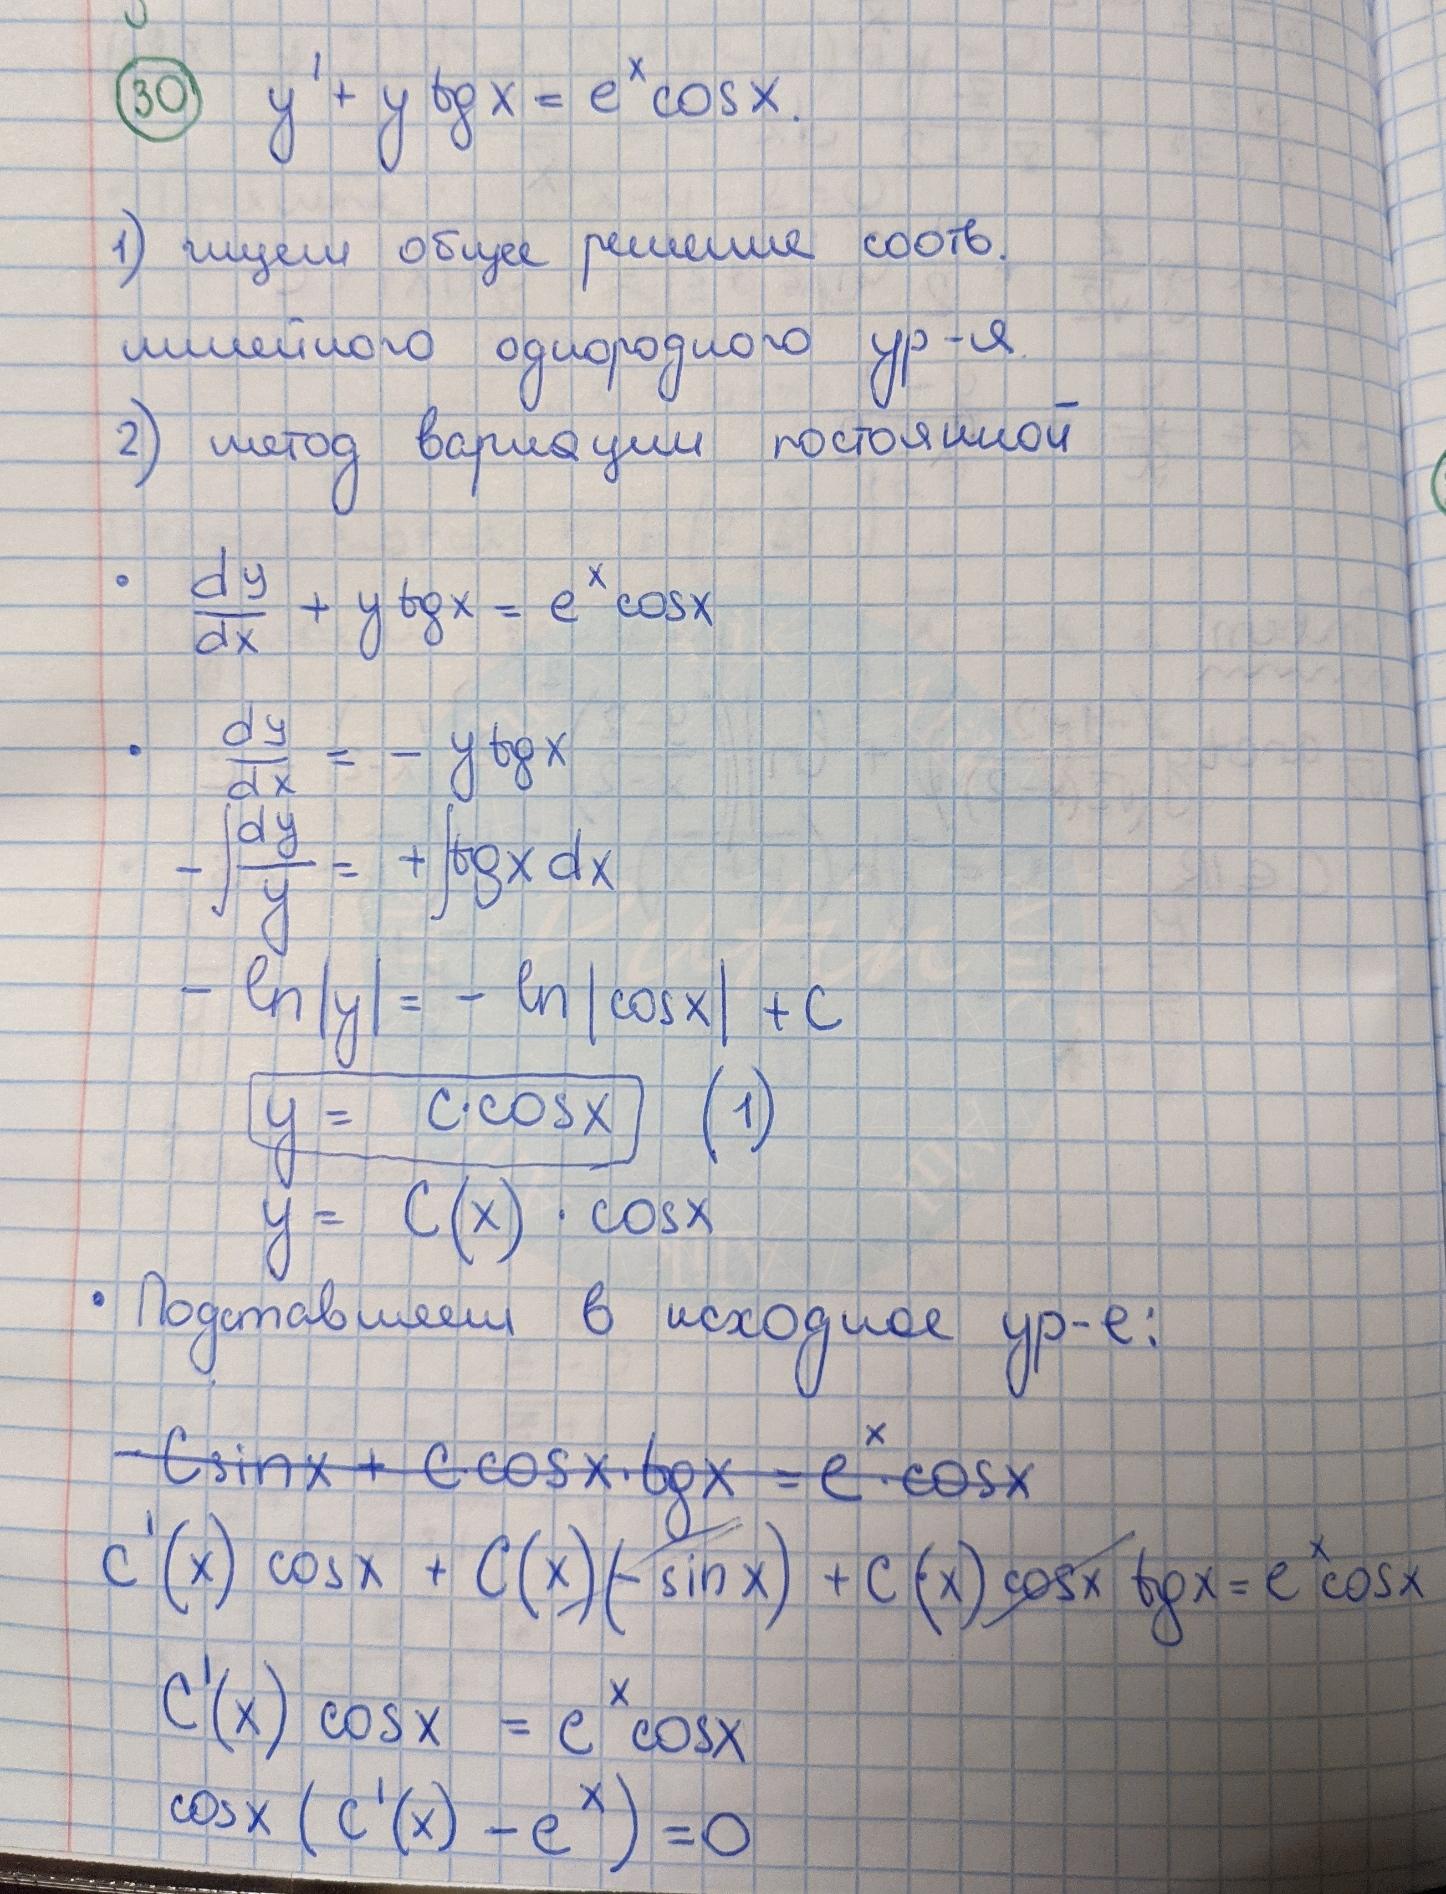 30 y' + y tg x = e^x cos x.
1) ищем общее решение соотв.
линейного однородного ур-я.
2) метод вариации постоянной
• dy/dx + y tg x = e^x cos x
• dy/dx = - y tg x
- ∫ dy/y = + ∫ tg x dx
- ln |y| = - ln |cos x| + C
y = C·cos x (1)
y = C(x) · cos x
• Подставляем в исходное ур-е:
- C sin x + C·cos x · tg x = e^x · cos x
C'(x) cos x + C(x)(- sin x) + C(x) cos x tg x = e^x cos x
C'(x) cos x = e^x cos x
cos x (C'(x) - e^x) = 0